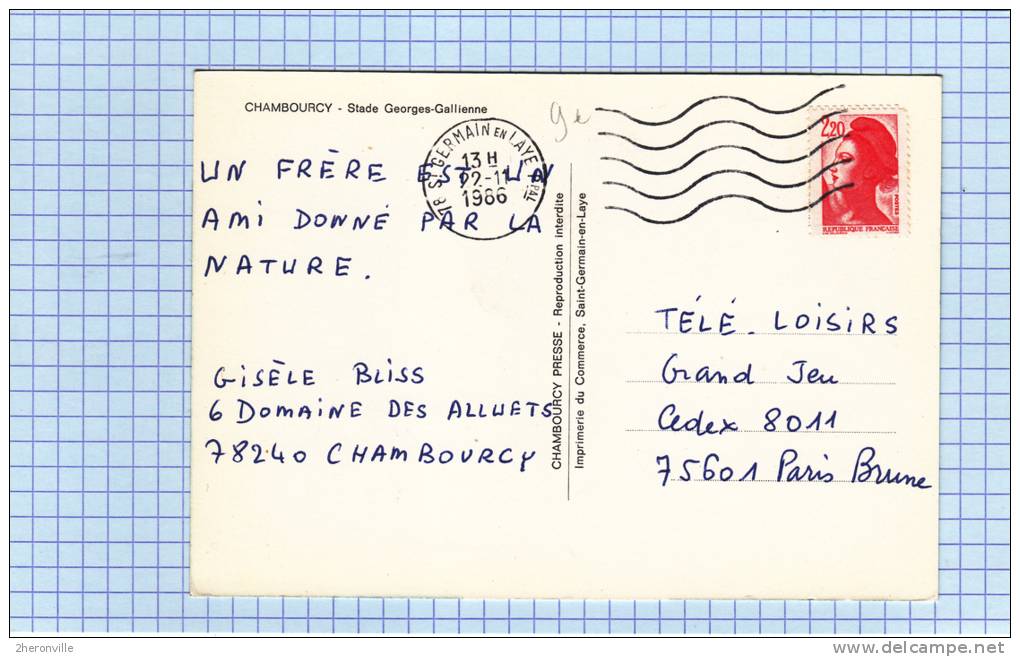 CHAMBOURCY - Stade Georges-Gallienne
9e
78 ST GERMAIN EN LAYE PPAL
13 H
22-11
1986
2,20
POSTES
REPUBLIQUE FRANCAISE
UN FRÈRE EST UN
AMI DONNÉ PAR LA
NATURE.
GISÈLE BLISS
6 DOMAINE DES ALLUETS
78240 CHAMBOURCY
CHAMBOURCY PRESSE - Reproduction interdite
Imprimerie du Commerce, Saint-Germain-en-Laye
TÉLÉ. LOISIRS
Grand Jeu
Cedex 8011
75601 Paris Brune
2heronville
delcampe.net